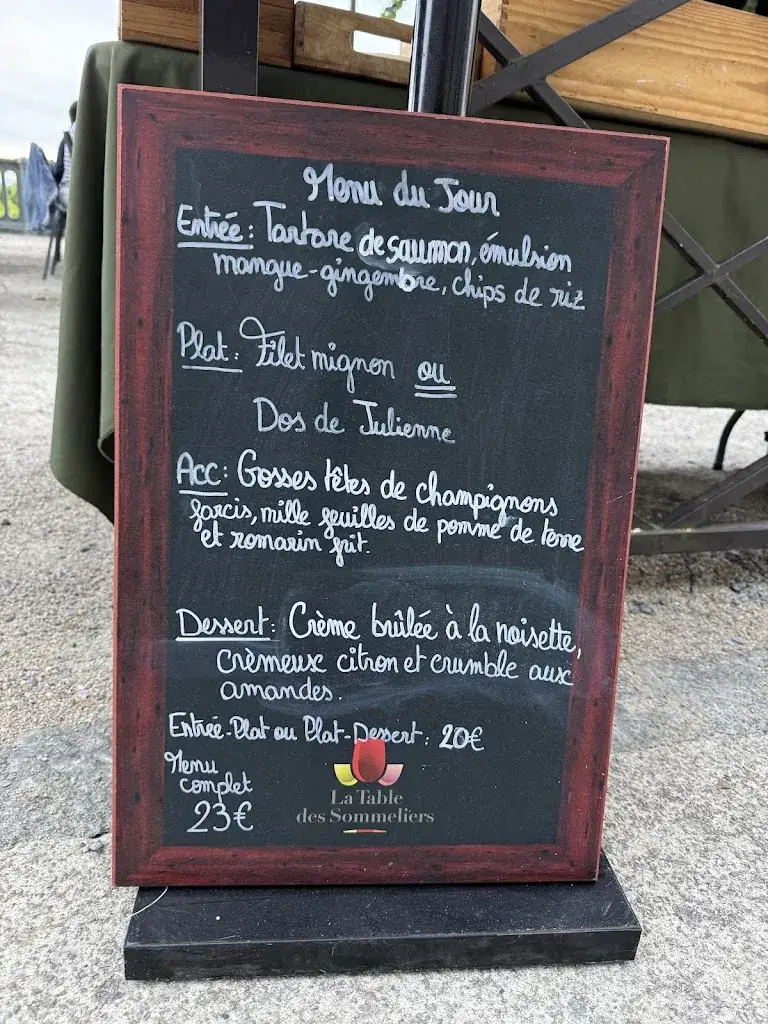 Menu du Jour
Entrée : Tartare de saumon, émulsion
mangue-gingembre, chips de riz
Plat : Filet mignon ou
Dos de Julienne
Acc : Gosses têtes de champignons
farcis, mille feuilles de pomme de terre
et romarin frit.
Dessert : Crème brûlée à la noisette,
crèmeux citron et crumble aux
amandes.
Entrée-Plat ou Plat-Dessert : 20€
Menu
complet
23€
La Table
des Sommeliers